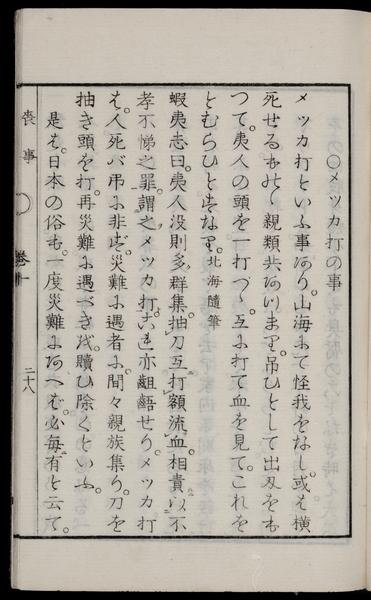 〇メッカ打の事
メッカ打といふ事あり。山海にて怪我をなし。或は横
死せるものゝ親類共あつまり。吊ひとして出刄をも
つて。夷人の頭を一打づゝ互に打て血を見て。これを
とむらひとすなり。北海随筆
蝦夷志曰。夷人没則多群集抽刀互打額流血。相責以不
孝不悌之罪。謂之メッカ打。これ亦齟齬せり。メッカ打
は。人死バ弔に非ず。災難に遇者に間々親族集り。刀を
抽き頭を打。再災難に遇べきを。贖ひ除くといふ。
是は。日本の俗も。一度災難にあへば。必毎有と云て。
喪事 〇 巻一 二十八